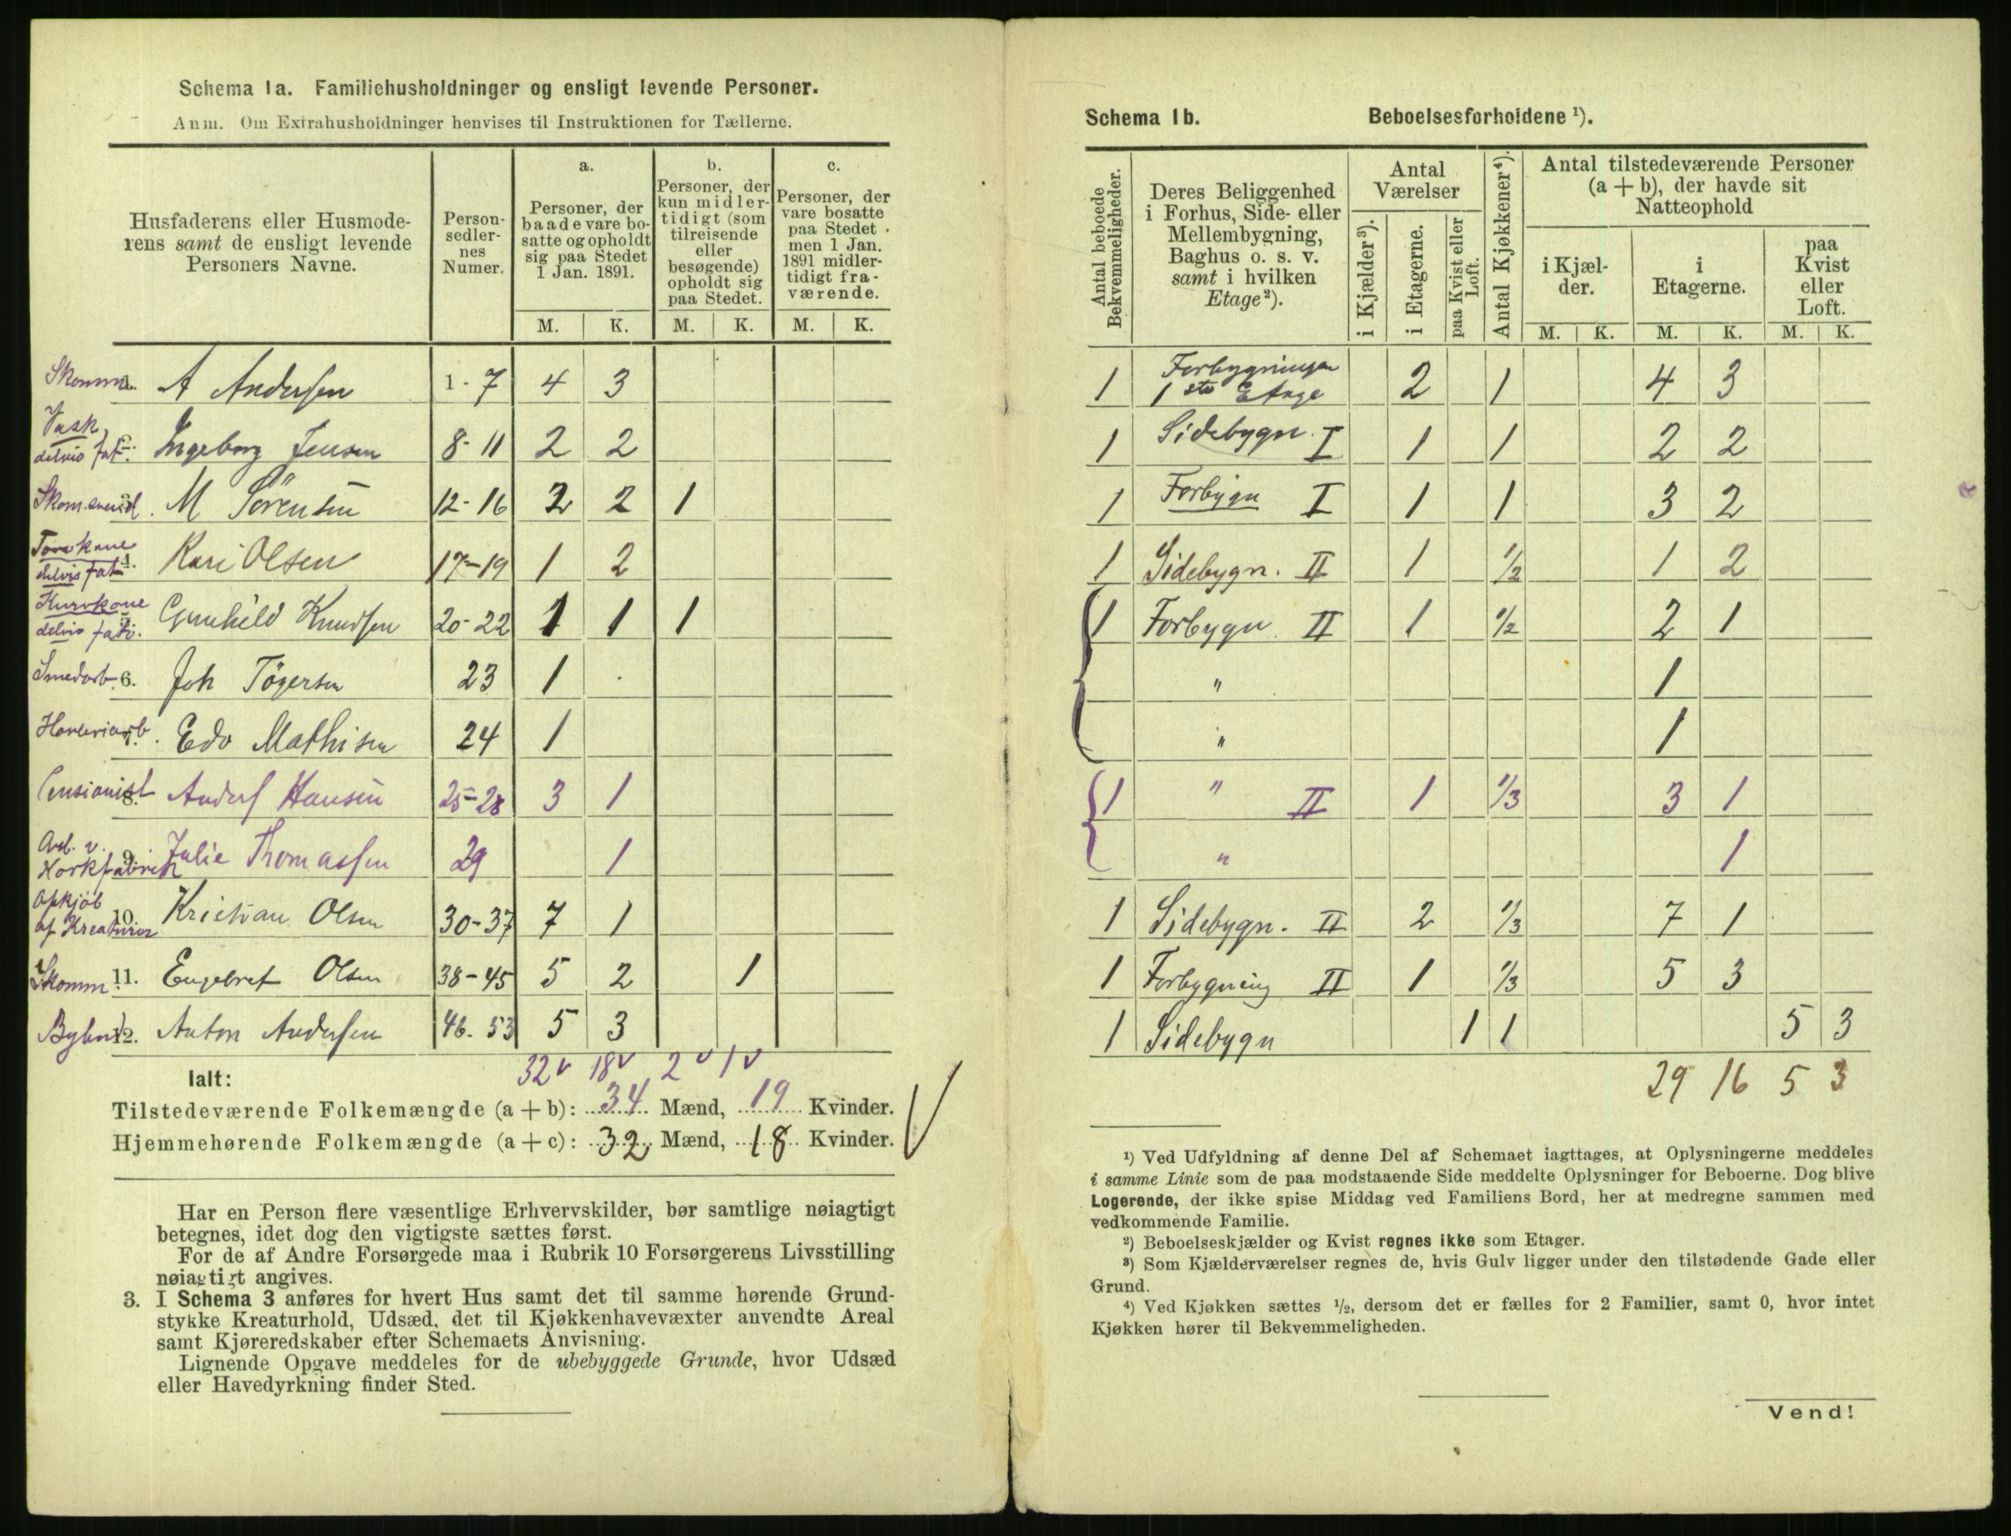 Schema 1a. Familiehusholdninger og ensligt levende Personer.
Anm. Om Extrahusholdninger henvises til Instruktionen for Tællerne.
Husfaderens eller Husmoderens samt de ensligt levende Personers Navne.
Personsedlernes Numer.
a. Personer, der baade vare bosatte og opholdt sig paa Stedet 1 Jan. 1891.
b. Personer, der kun midlertidigt (som tilreisende eller besøgende) opholdt sig paa Stedet.
c. Personer, der vare bosatte paa Stedet men 1 Jan. 1891 midlertidigt fraværende.
M. K. M. K. M. K.
Skomm. A Andersen 1 - 7 4 3
Vask, delvis fat. 2. Ingeborg Jensen 8 - 11 2 2
Skom.svend 3. M Sörensen 12 - 16 2 2 1
delvis fat 4. Kari Olsen 17 - 19 1 2
Kurvkone delvis fat. Gunhild Knudsen 20 - 22 1 1 1
Smedarb. 6. Joh Tögersen 23 1
Edv Mathisen 24 1
Pensionist 8. Anders Hansen 25 - 28 3 1
Arb. v. Korkfabrik 9. Julie Thomassen 29 1
Opkjöb af Kreaturer 10. Kristian Olsen 30 - 37 7 1
Skomm. 11. Engebret Olsen 38 - 45 5 2 1
12. Anton Andersen 46 - 53 5 3
32 v 18 v 2 v 1 v
Ialt:
Tilstedeværende Folkemængde (a + b): 34 Mænd, 19 Kvinder.
Hjemmehørende Folkemængde (a + c): 32 Mænd, 18 Kvinder.
Har en Person flere væsentlige Erhvervskilder, bør samtlige nøiagtigt
betegnes, idet dog den vigtigste sættes først.
For de af Andre Forsørgede maa i Rubrik 10 Forsørgerens Livsstilling
nøiagtigt angives.
3. I Schema 3 anføres for hvert Hus samt det til samme hørende Grund-
stykke Kreaturhold, Udsæd, det til Kjøkkenhavevæxter anvendte Areal
samt Kjøreredskaber efter Schemaets Anvisning.
Lignende Opgave meddeles for de ubebyggede Grunde, hvor Udsæd
eller Havedyrkning finder Sted.
Schema 1b. Beboelsesforholdene ¹).
Antal beboede Bekvemmeligheder.
Deres Beliggenhed i Forhus, Side- eller Mellembygning, Baghus o. s. v. samt i hvilken Etage ²).
Antal Værelser
i Kjælder ³).
i Etagerne.
paa Kvist eller Loft.
Antal Kjøkkener ⁴).
Antal tilstedeværende Personer (a + b), der havde sit Natteophold
i Kjælder.
i Etagerne.
paa Kvist eller Loft.
M. K. M. K. M. K.
1 Forbygningen 1ste Etage 2 1 4 3
1 Sidebygn. I 1 1 2 2
1 Forbygn I 1 1 3 2
1 Sidebygn. II 1 1/2 1 2
1 Forbygn II 1 1/2 2 1
" 1
" 1
1 " II 1 1/3 3 1
" 1
1 Sidebygn. II 2 1/3 7 1
1 Forbygning II 1 1/3 5 3
1 Sidebygn 1 1 5 3
29 16 5 3
¹) Ved Udfyldning af denne Del af Schemaet iagttages, at Oplysningerne meddeles
i samme Linie som de paa modstaaende Side meddelte Oplysninger for Beboerne. Dog blive
Logerende, der ikke spise Middag ved Familiens Bord, her at medregne sammen med
vedkommende Familie.
²) Beboelseskjælder og Kvist regnes ikke som Etager.
³) Som Kjælderværelser regnes de, hvis Gulv ligger under den tilstødende Gade eller
Grund.
⁴) Ved Kjøkken sættes ¹/₂, dersom det er fælles for 2 Familier, samt 0, hvor intet
Kjøkken hører til Bekvemmeligheden.
Vend!